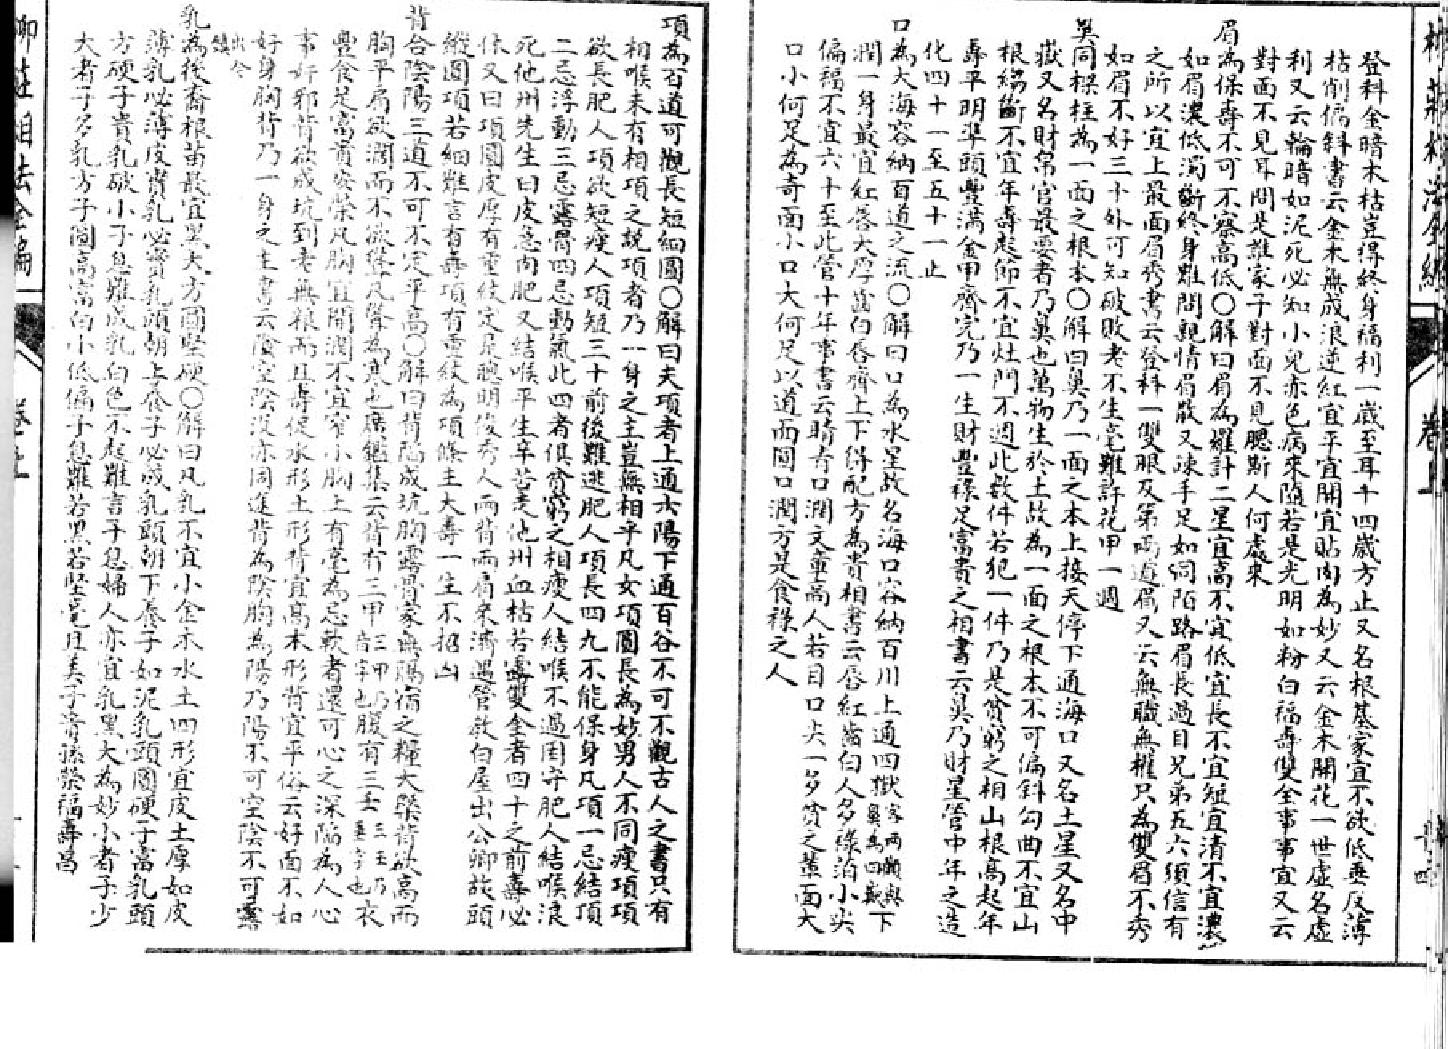 登科金暗木枯豈得終身福利一歲至耳十四歲方止又名根基家宜不欲低垂反薄
枯削偏斜書云金木無成浪逆紅宜平宜開宜貼肉為妙又云金木開花一世虛名虛
利又云輪暗如泥死必知小兒赤色病來隨若是光明如粉白福壽雙全事事宜又云
對面不見耳問是誰家子對面不見腮斯人何處來
眉為保壽不可不察高低〇解曰眉為羅計二星宜高不宜低宜長不宜短宜清不宜濃
如眉濃低濁斷終身難問親情眉散又疎手足如同陌路眉長過目兄弟五六須信有
之所以宜上最面眉秀書云登科一雙眼及第兩道眉又云無職無權只為雙眉不秀
如眉不好三十外可知破敗老不生毫難許花甲一週
鼻同樑柱為一面之根本〇解曰鼻乃一面之本上接天停下通海口又名土星又名中
嶽又名財帛官最要者乃鼻也萬物生於土故為一面之根本不可偏斜勾曲不宜山
根細斷不宜年壽起節不宜灶門不週此數件若犯一件乃是貧窮之相山根高起年
壽平明準頭豐滿金甲齊完乃一生財豐祿足富貴之相書云鼻乃財星管中年之造
化四十一至五十一止
口為大海容納百道之流〇解曰口為水星故名海口容納百川上通四獄下
潤一身最宜紅唇大厚齒白唇齊上下得配方為貴相書云唇紅齒白人多祿泊小尖
偏福不宜六十至此管十年事書云睛青口濶文章高人若目口尖一多貧之輩面大
口小何足為奇面小口大何足以道面圓口濶方是食祿之人
項為百道可觀長短細圓〇解曰夫項者上通六陽下通百谷不可不觀古人之書只有
相喉未有相項之說項者乃一身之主豈無相乎凡女項圓長為妙男人不同瘦項項
欲長肥人項欲短瘦人項短三十前後難逃肥人項長四九不能保身凡項一忌結項
二忌浮動三忌露骨四忌動氣此四者俱貧窮之相瘦人結喉不過困守肥人結喉浪
死他州先生曰皮急肉肥又結喉平生辛苦走他州血枯若露雙全者四十之前壽必
休又曰項圓皮厚有重紋定是聰明俊秀人而背而肩來濟遇管教白屋出公卿故頭
縱圓項若細難言有壽項有重紋為項條主大壽一生不招凶
背合陰陽三道不可不定平高〇解曰背陷成坑胸露骨家無隔宿之糧大槩背欲高而
胸平肩欲濶而不欲聳凡聳為寒也廣鑑集云背有三甲腹有三壬衣
豐食足富貴安榮凡胸宜開濶不宜窄小胸上有毫為忌軟者還可心之深陷為人心
事奸邪背欲成坑到老無粮而且壽促水形土形背宜高木形背宜平俗云好面不如
好身胸背乃一身之主書云陰空陰沒亦同進背為陰胸為陽乃陽不可空陰不可露
乳為後裔根苗最宜黑大方圓堅硬〇解曰凡乳不宜小金木水土四形宜皮土厚如皮
薄乳必薄皮實乳必實乳頭朝上養子必成乳頭朝下養子如泥乳頭圓硬子富乳頭
方硬子貴乳破小子息難成乳白色不起難言子息婦人亦宜乳黑大為妙小者子少
大者子多乳方子圓高高白小低偏子息難若黑若堅毫且美子貴孫榮福壽昌